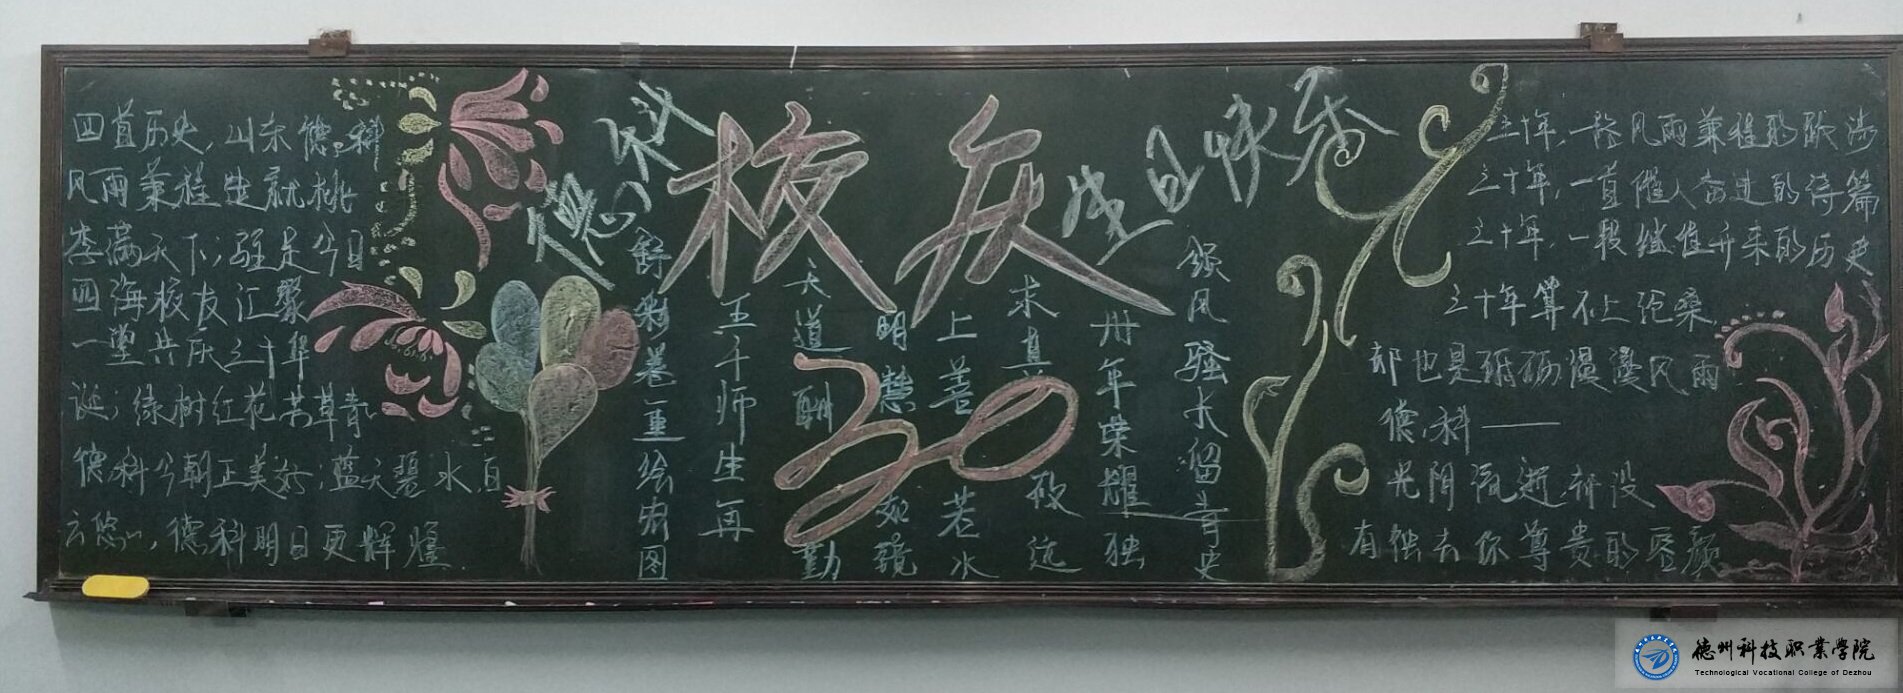 四首历史,山东德科
风雨兼程造就桃
李满天下;驻足今日
四海校友汇聚
一堂共庆三十华
诞;绿树红花芳草青
德科今朝正美好;蓝天碧水,白
云悠,德科明日更辉煌.
德科
校庆
生日快乐
30
舒彩卷重绘宏图
王千师生再
天道酬勤
明慧如镜
上善若水
求真致远
卅年荣耀独
领风骚长留青史
三十年,一路风雨兼程的跋涉
三十年,一首催人奋进的诗篇
三十年,一段继往开来的历史
三十年算不上沧桑,
却也是砥砺漫漫风雨
德科——
光阴流逝,却没
有褪去你尊贵的容颜
德州科技职业学院
Technological Vocational College of Dezhou